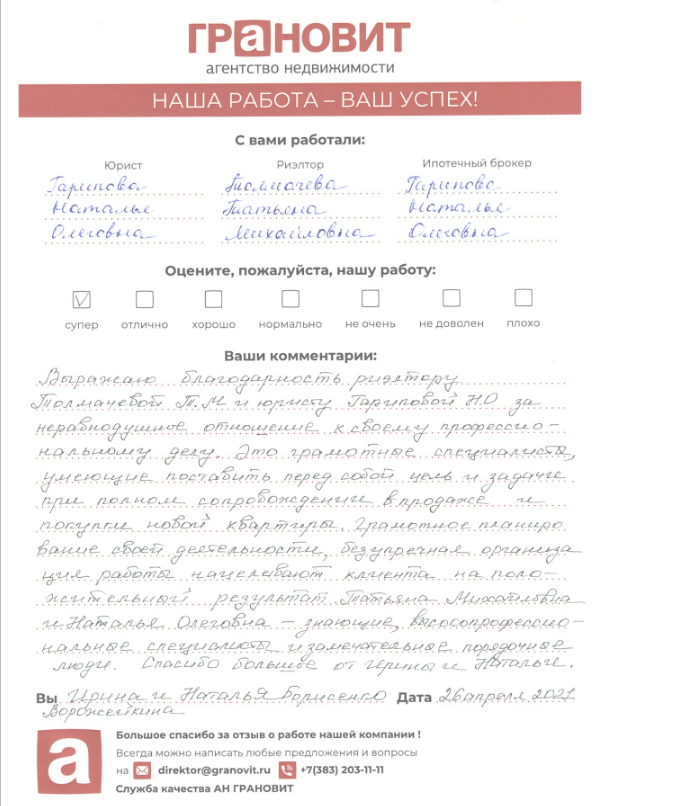 ГРаНОВИТ
агентство недвижимости
НАША РАБОТА – ВАШ УСПЕХ!
С вами работали:
Юрист Риэлтор Ипотечный брокер
Гарипова Толмачева Гарипова
Наталье Татьяна Наталье
Олеговна Михайловна Олеговна
Оцените, пожалуйста, нашу работу:
супер отлично хорошо нормально не очень не доволен плохо
Ваши комментарии:
Выражаю благодарность риэлтору
Толмачевой Т.М и юристу Гариповой Н.О за
неравнодушное отношение к своему профессио-
нальному делу. Это грамотные специалисты,
умеющие поставить перед собой цель и задачи
при полном сопровождении в продаже и
покупки новой квартиры. Грамотное планиро
вание своей деятельности, безупречная организа
ция работы нацеливают клиента на поло-
жительный результат. Татьяна Михайловна
и Наталья Олеговна – знающие, высокопрофессио-
нальные специалисты и замечательные порядочные
люди. Спасибо большое от Ирины и Натальи.
Вы Ирина и Наталья Борисенко Дата 26 апреля 2021
Ворожейкина
а
Большое спасибо за отзыв о работе нашей компании !
Всегда можно написать любые предложения и вопросы
на direktor@granovit.ru +7(383) 203-11-11
Служба качества АН ГРАНОВИТ